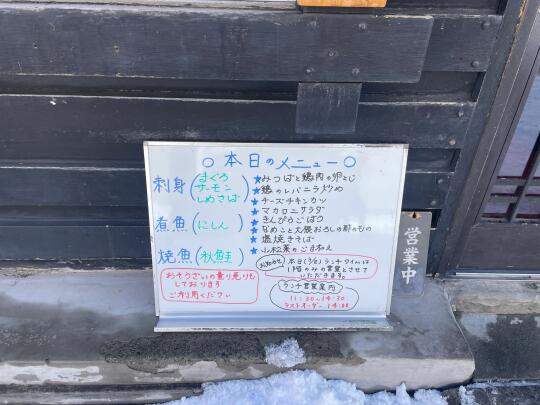 ○本日のメニュー○
刺身(まぐろ
サーモン
しめさば)
煮魚(にしん)
焼魚(秋鮭)
おそうざいの量り売りも
しております
ご利用ください
★みつばと鶏肉の卵とじ
★鶏のレバニラ炒め
★チーズチキンカツ
★マカロニサラダ
★きんぴらごぼう
★なめこと大根おろしの酢のもの
★塩焼きそば
★小松菜のごま和え
お知らせ 本日(3/2)ランチタイムは
1階のみの営業とさせて
いただきます。
ランチ営業案内
11:30~14:30
ラストオーダー 14:00
営業中